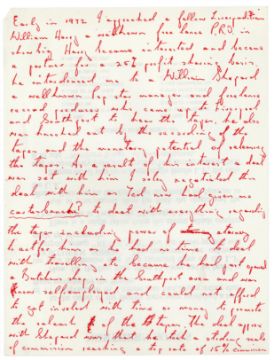 Early in 1972 I approached a fellow Liverpudlian
William Harry a well known free lance P.R.O in
showbiz Harry became interested and became
a partner for a 25% profit sharing basis,
he introduced me to a William Shepard
a well known Pop star manager and freelance
record producer who came to Liverpool
and Southport to hear the tapes, he also
was knocked out by the recording of the
tapes and the monetary potential of releasing
the tape. As a result of his interest a deal
was set with him I solely negotiated this
deal with him as Ted who had given me
to deal with everything regarding
the tapes including power of attorney
to act for him as he had no time to deal
with travelling etc because he had just opened
a Butchers shop in the Southport area and was
now self employed and could not afford
to get involved with time or money to promote
the release of the tapes, the deal
with Shepard was, that he had a sliding scale
of commission reaching a top rate of 15%